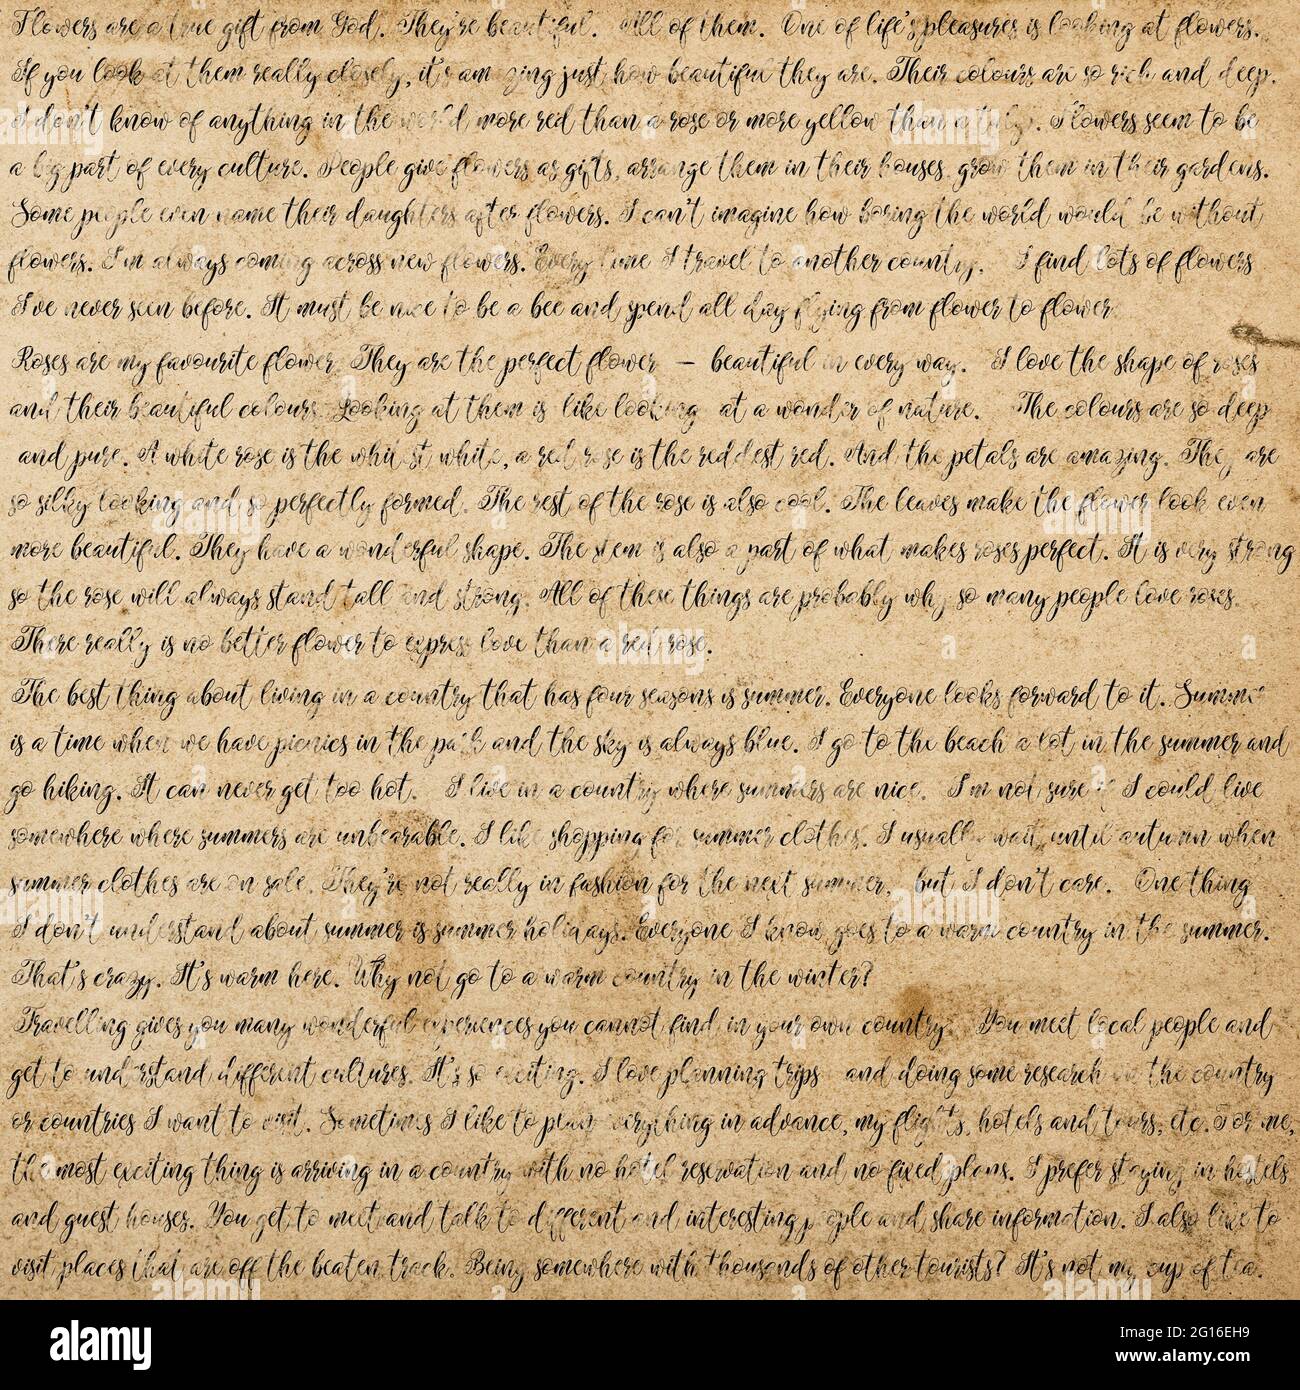 Flowers are a true gift from God. They're beautiful. All of them. One of life's pleasures is looking at flowers.
If you look at them really closely, it's amazing just how beautiful they are. Their colours are so rich and deep.
I don't know of anything in the world more red than a rose or more yellow than a tulip. Flowers seem to be
a big part of every culture. People give flowers as gifts, arrange them in their houses, grow them in their gardens.
Some people even name their daughters after flowers. I can't imagine how boring the world would be without
flowers. I'm always coming across new flowers. Every time I travel to another country, I find lots of flowers
I've never seen before. It must be nice to be a bee and spend all day flying from flower to flower.
Roses are my favourite flower. They are the perfect flower – beautiful in every way. I love the shape of roses
and their beautiful colours. Looking at them is like looking at a wonder of nature. The colours are so deep
and pure. A white rose is the whitest white, a red rose is the reddest red. And the petals are amazing. They are
so silky looking and so perfectly formed. The rest of the rose is also cool. The leaves make the flower look even
more beautiful. They have a wonderful shape. The stem is also a part of what makes roses perfect. It is very strong
so the rose will always stand tall and strong. All of these things are probably why so many people love roses.
There really is no better flower to express love than a red rose.
The best thing about living in a country that has four seasons is summer. Everyone looks forward to it. Summer
is a time when we have picnics in the park and the sky is always blue. I go to the beach a lot in the summer and
go hiking. It can never get too hot. I live in a country where summers are nice. I'm not sure if I could live
somewhere where summers are unbearable. I like shopping for summer clothes. I usually wait until autumn when
summer clothes are on sale. They're not really in fashion for the next summer, but I don't care. One thing
I don't understand about summer is summer holidays. Everyone I know goes to a warm country in the summer.
That's crazy. It's warm here. Why not go to a warm country in the winter?
Travelling gives you many wonderful experiences you cannot find in your own country. You meet local people and
get to understand different cultures. It's so exciting. I love planning trips and doing some research on the country
or countries I want to visit. Sometimes I like to plan everything in advance, my flights, hotels and tours, etc. For me,
the most exciting thing is arriving in a country with no hotel reservation and no fixed plans. I prefer staying in hostels
and guest houses. You get to meet and talk to different and interesting people and share information. I also like to
visit places that are off the beaten track. Being somewhere with thousands of other tourists? It's not my cup of tea.
alamy
Image ID: 2G16EH9
www.alamy.com